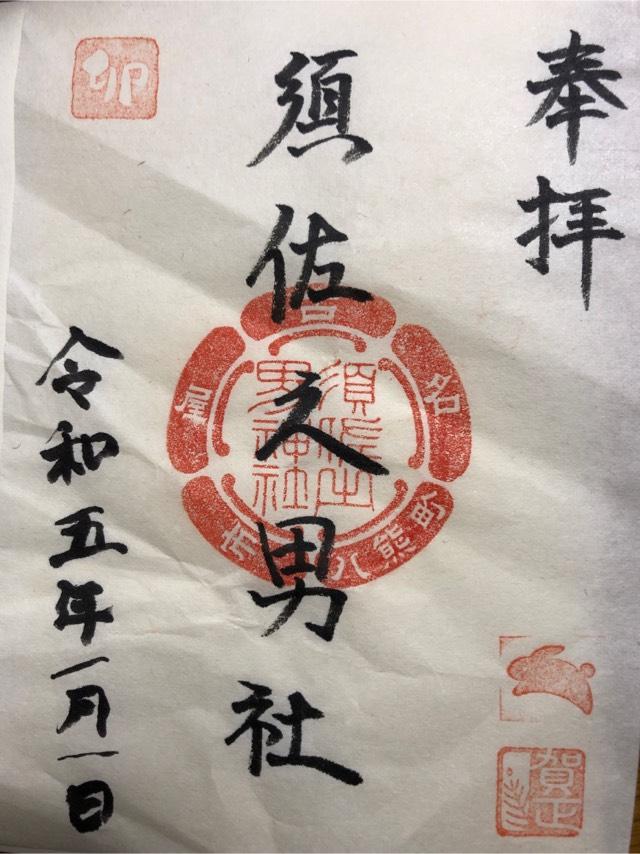 奉拝
須佐之男社
令和五年一月一日
卯
名古屋市
八熊町
須佐之
男神社
賀正